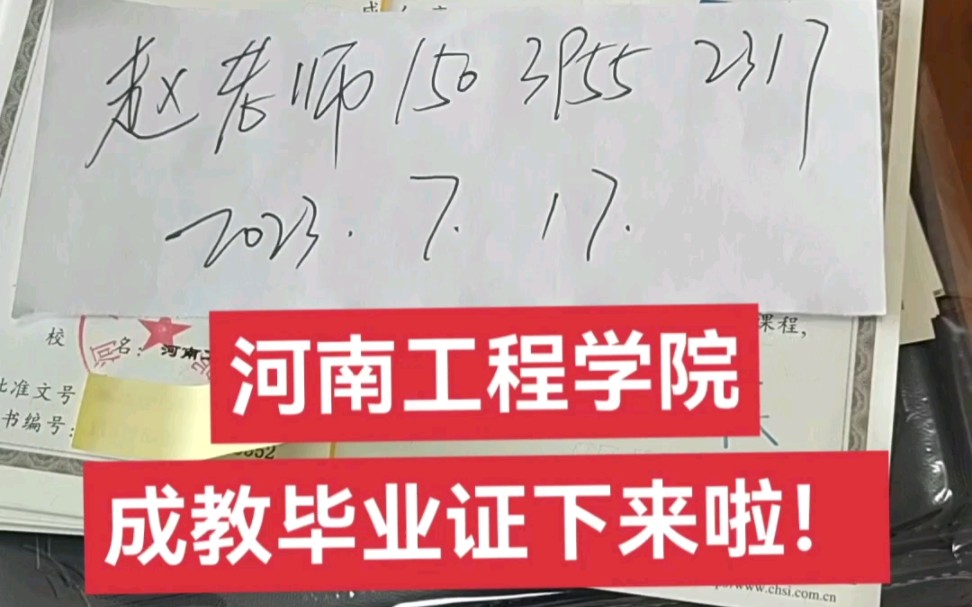 赵老师 150 3955 2317
2023. 7. 17.
课程,
校 名: 河南工
河南工程学院
批准文号
书编号:
成教毕业证下来啦!
www.chsi.com.cn